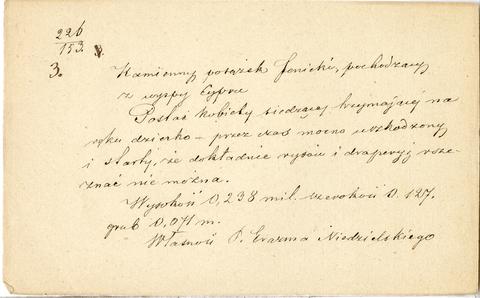 226
153.
3.
Kamienny posążek fenicki, pochodzący
z wyspy Cypru
Postać kobiety siedzącej trzymającej na
ręku dziecko – przez czas mocno uszkodzony
i starty, że dokładnie rysów i draperyj roze-
znać nie można.
Wysokość 0,238 mil. szerokość 0.127.
grub 0,071 m.
Własność P. Erazma Niedzielskiego